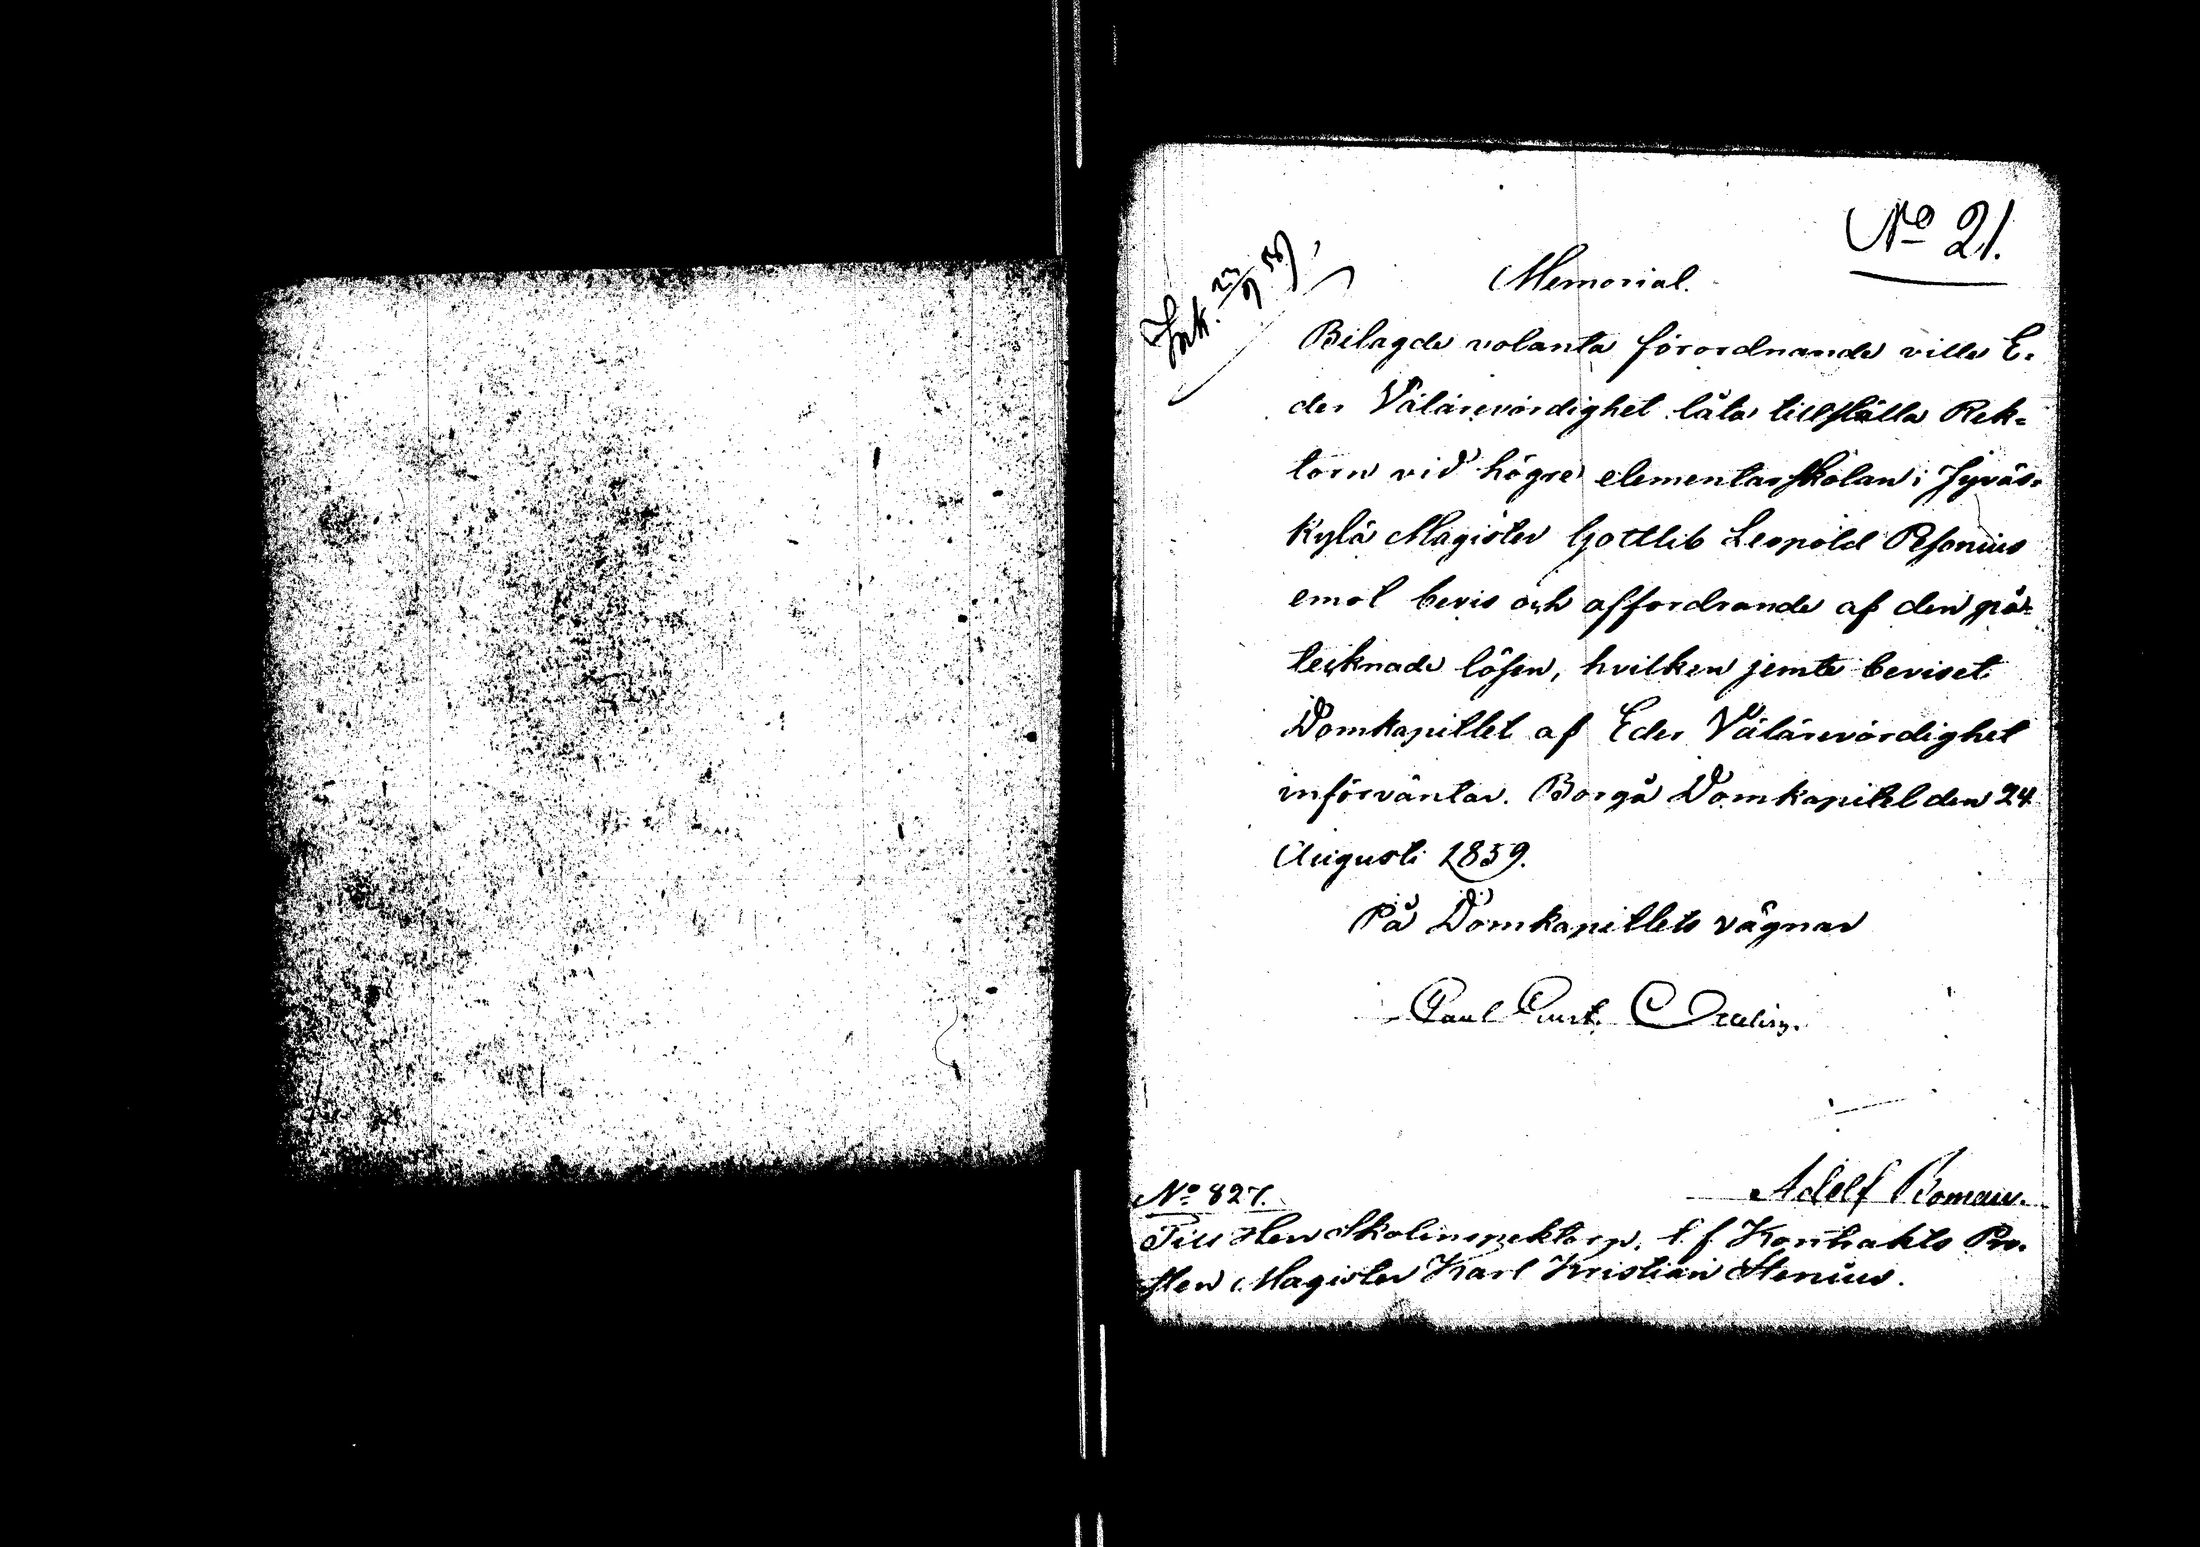 No 21.
Ink. 23/9 59.
Memorial.
Bilagde volanta förordnande ville E-
der Välärevördighet låta tillställa Rek-
torn vid högre elementarskolan i Jyväs-
kylä Magister Gottlib Leopold Resonius
emot bevis och affordrande af den på-
tecknade lösen, hvilken jemte beviset
Domkapitlet af Eder Välärevördighet
införväntar. Borgå Domkapitel den 24
Augusti 1859.
På Domkapitlets vägnar
Paul
Adolf Boman.
No 827.
Till Herr Skolinspektorn, t. f. Kontrakts Pro-
sten Magister Karl Kristian Stenius.